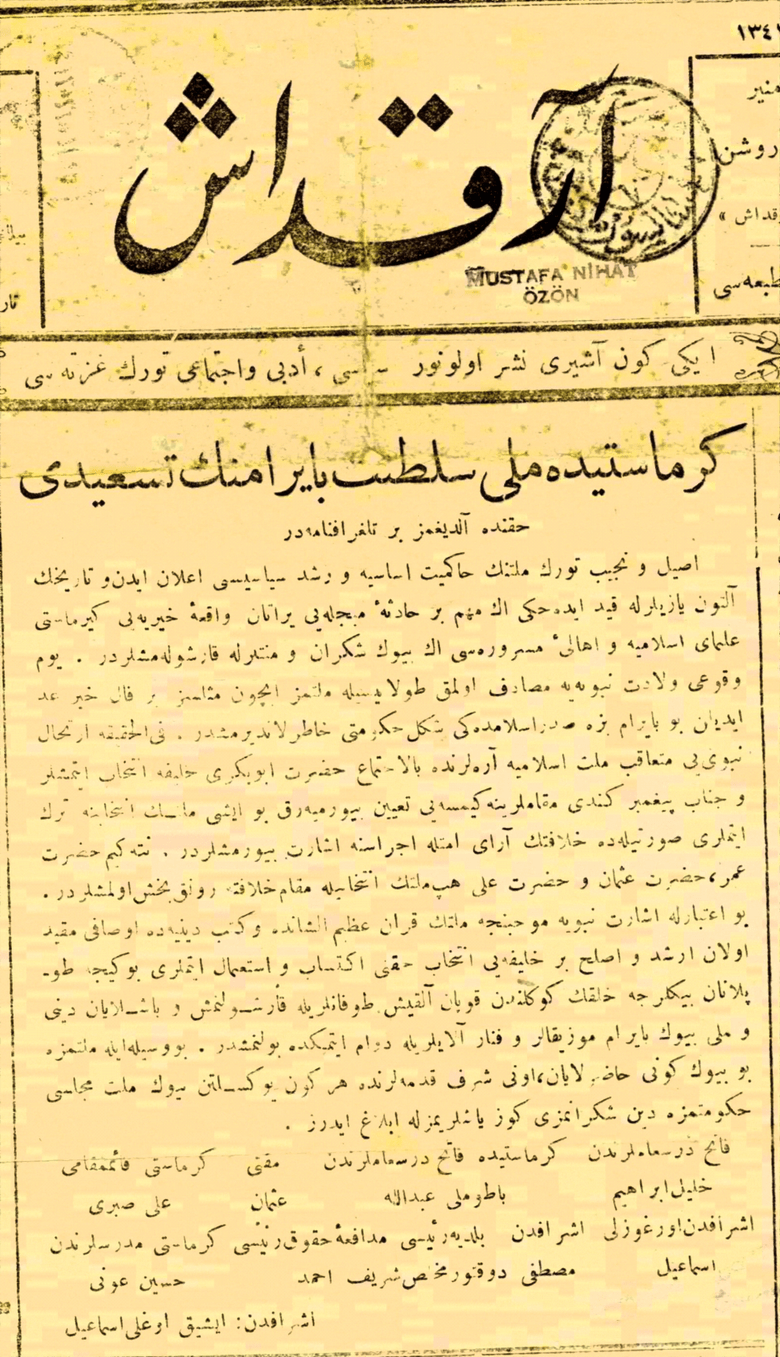 ١٣٤١
منير
روشن
آرقداش
MUSTAFA NİHAT
ÖZÖN
ايكى كون آشيرى نشر اولونور سياسى ، أدبى واجتماعى تورك غزته سى
كرماستيده ملى سلطنت بايرامنك تسعيدى
حقنده آلديغمز بر تلغرافنامه در
اصيل و نجيب تورك ملتنك حاكميت اساسيه و رشد سياسيسى اعلان ايدن و تاريخك
آلتون يازيلرله قيد ايده جكى اك مهم بر حادثهٔ مبجله يى يراتان واقعهٔ خيريه يى كيرماستى
علماى اسلاميه و اهالىٔ مسروره سى اك بيوك شكران و منتدرله قارشولامشلردر . يوم
وقوعى ولادت نبويه يه مصادف اولمق طولاييسيله ملتمز ايچون مثلسز بر فال خير عد
ايديلن بو بايرام بزه صدر اسلامده كى شكل حكومتى خاطرلانديرمشدر . فى الحقيقه ارتحال
نبوى يى متعاقب ملت اسلاميه آره لرنده بالاجتماع حضرت ابوبكرى خليفه انتخاب ايتمشلر
و جناب پيغمبر كندى مقاملرينه كيمسه يى تعيين بيورميه رق بو ايشى ملتك انتخابنه ترك
ايتملرى صورتيله ده خلافتك آراى امتله اجراسنه اشارت بيورمشلردر . نته كيم حضرت
عمر ، حضرت عثمان و حضرت على هپ ملتك انتخابيله مقام خلافته رونق بخش اولمشلردر .
بو اعتبارله اشارت نبويه موجبنجه ملتك قران عظيم الشانده و كتب دينيه ده اوصافى مقيد
اولان ارشد و اصلح بر خليفه يى انتخاب حقنى اكتساب و استعمال ايتملرى بو كيجه طو-
پلانان بيكلرجه خلقك كوكلندن قوپان آلقيش طوفانلريله قارشولنمش و باشلايان دينى
و ملى بيوك بايرام موزيقالر و فنار آلايلريله دوام ايتمكده بولنمشدر . بو وسيله ايله ملتمزه
بو بيوك كونى حاضرلايان ، اونى شرف قدمه لرنده هر كون يوكسلتن بيوك ملت مجلسى
حكومتمزه دين شكرانمزى كوز ياشلريمزله ابلاغ ايدرز .
فاتح درسعاملرندن كرماستيده فاتح درسعاملرندن مفتى كرماستى قائممقامى
خليل ابراهيم باطوملى عبدالله عثمان على صبرى
اشرافدن اورغوزلى اشرافدن بلديه رئيسى مدافعهٔ حقوق رئيسى كرماستى مدرسلرندن
اسماعيل مصطفى دوقتور مخلص شريف احمد حسين عونى
اشرافدن : ايشيق اوغلى اسماعيل